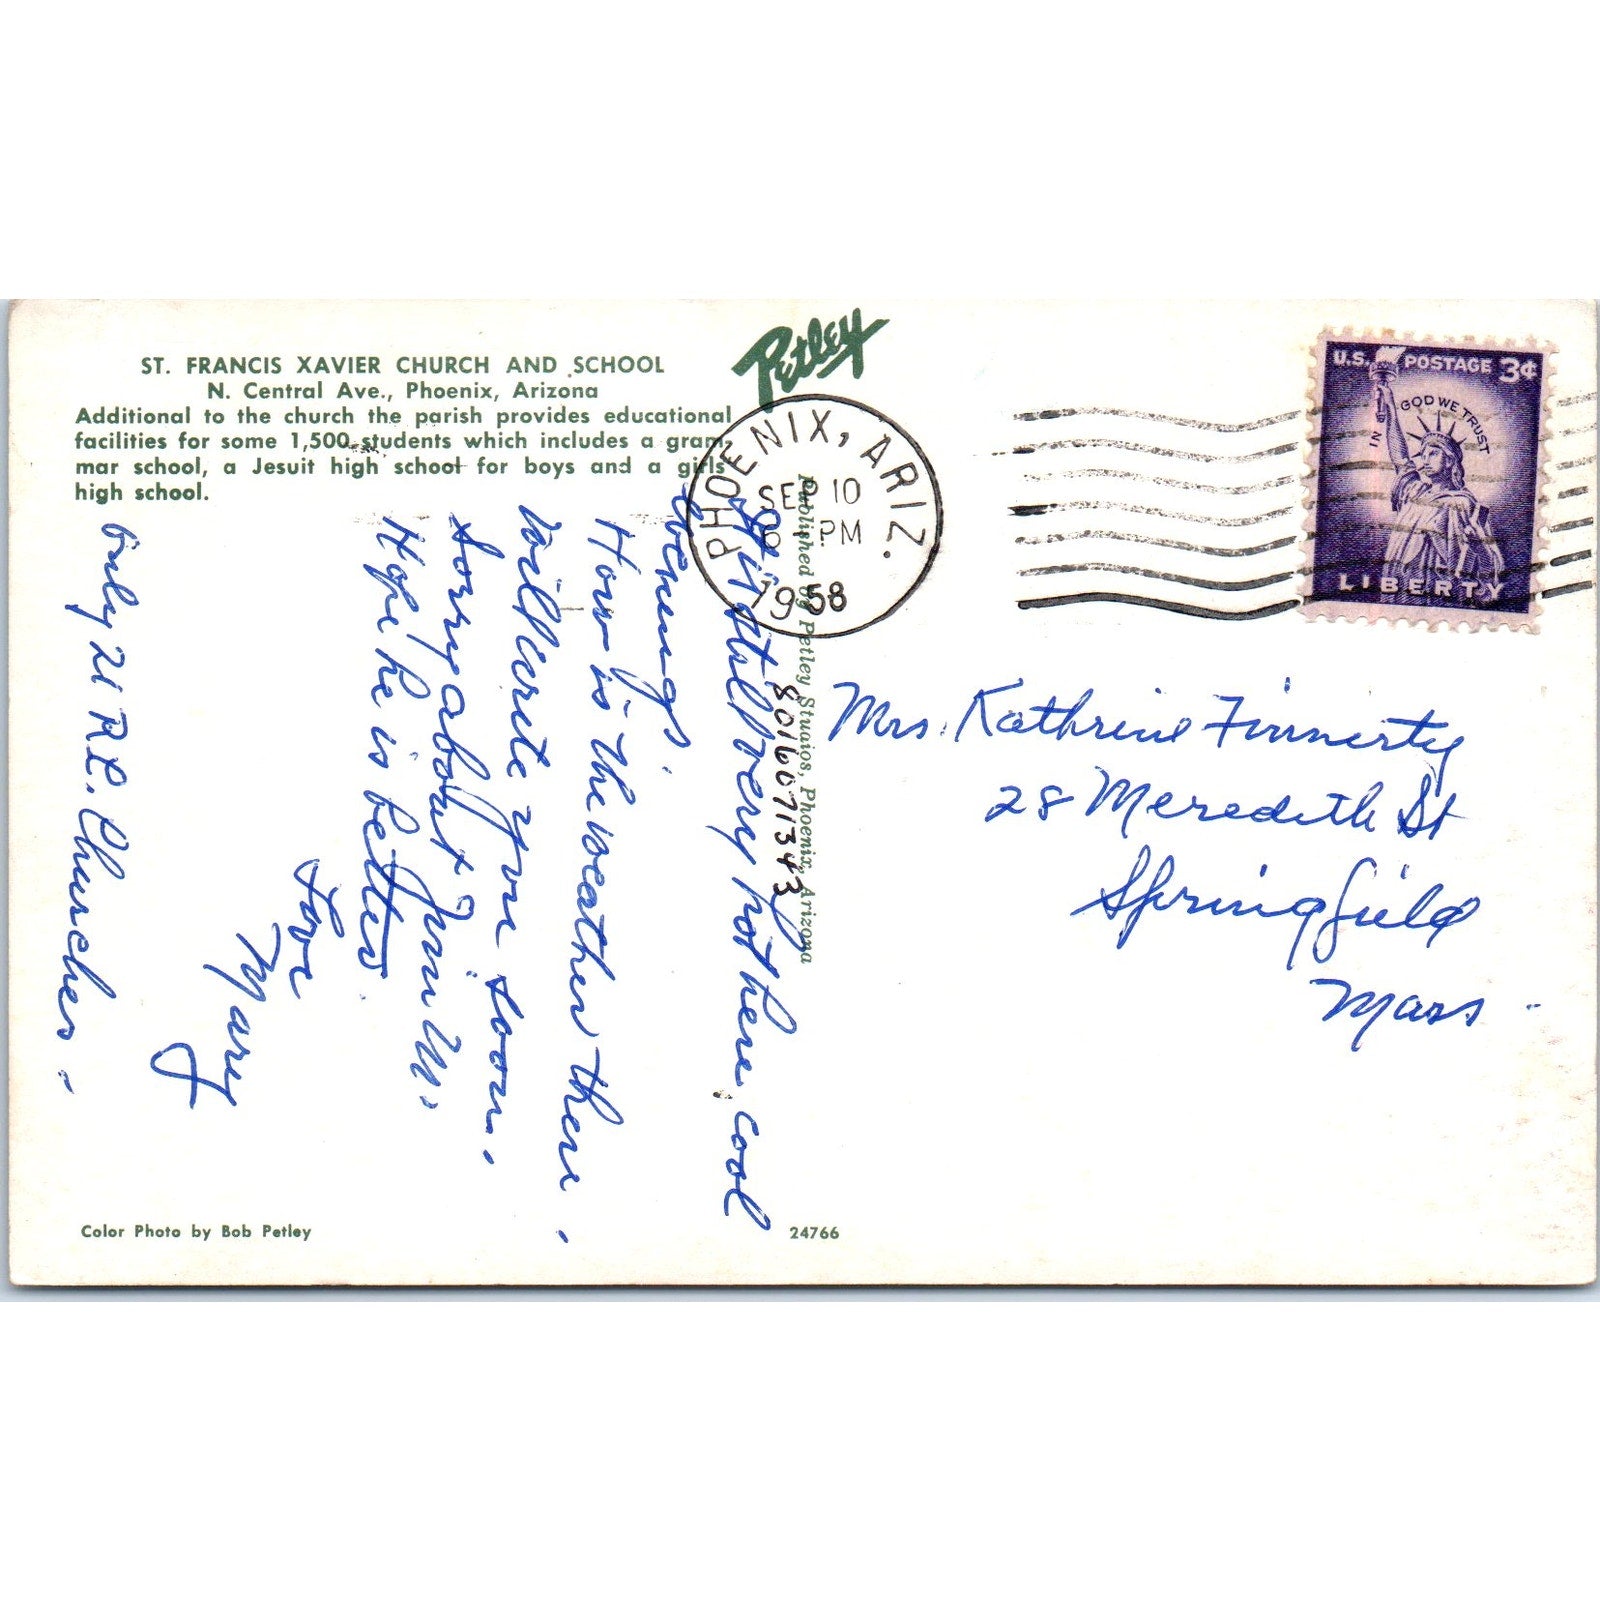 ST. FRANCIS XAVIER CHURCH AND SCHOOL
N. Central Ave., Phoenix, Arizona
Additional to the church the parish provides educational
facilities for some 1,500 students which includes a gram-
mar school, a Jesuit high school for boys and a girls'
high school.
Petley
PHOENIX, ARIZ.
SEP 10
PM
1958
U.S. POSTAGE 3¢
IN GOD WE TRUST
LIBERTY
Published by Petley Studios, Phoenix, Arizona
8016071343
it still very hot here cool
evenings.
How is the weather there.
Will write you soon.
Sorry about M.
Hope he is better
Love
Mary
Only 21 R.C. Churches.
Mrs. Kathrine Finnerty
28 Meredith St
Springfield
Mass
Color Photo by Bob Petley
24766